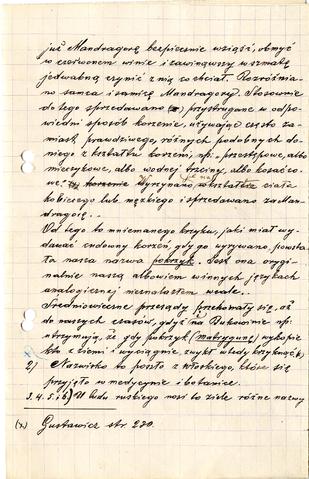 już Mandragorę bezpiecznie wziąść, obmyć
w czerwonem winie i zawinąwszy w szmatę
jedwabną czynić z nią co chciał. Rozróżnia-
no samca i samicę Mandragory. Stosownie
do tego sprzedawano przystrugane w odpo-
wiedni sposób korzenie, używając często za-
miast prawdziwego, różnych podobnych do
niego z kształtu korzeni, np.
mieczykowe, albo wodnej trzciny, albo kosaćco-
we. Wyrzynano kształtu ciała
kobiecego lub męzkiego i sprzedawano za Man-
dragorę.
Od tego to mniemanego krzyku, jaki miał wy-
dawać cudowny korzeń, gdy go wyrywano, powsta-
ła nasza nazwa pokrzyk. Jest ona orygi-
nalnie naszą albowiem w innych językach
analogicznej nie znalazłem wcale.
Średniowieczne przesądy przechowały się, aż
do naszych czasów, gdyż na Bukowinie np.
utrzymują, że gdy pokrzyk (matrygunę) wykopie
kto z ziemi i wyciągnie, zwykł wtedy krzyknąć
2) Nazwisko to poszło z włoskiego, które się
przyjęło w medycynie i botanice.
3. 4. 5. i 6) U ludu ruskiego nosi to ziele różne nazwy
(x) Gustawicz str 230.